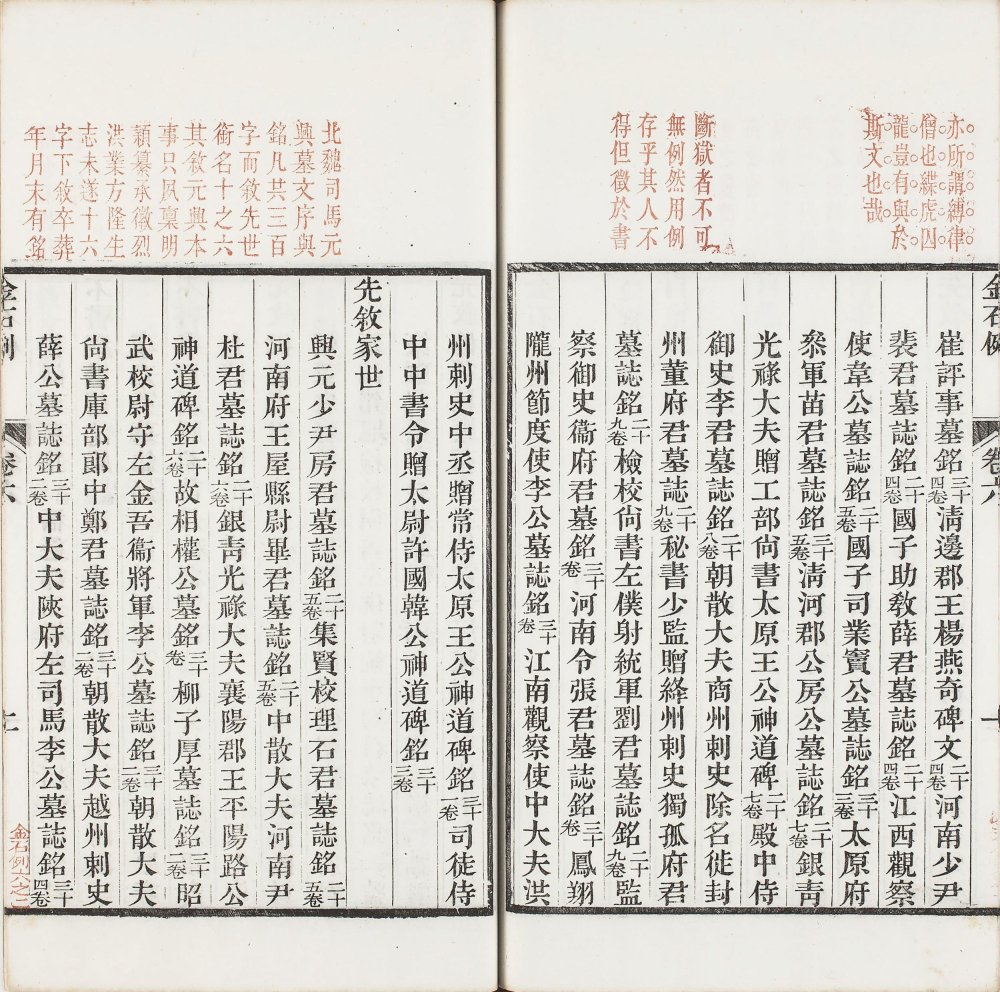 亦所謂縛律
僧也緤虎囚
龍豈有與於
斯文也哉
斷獄者不可
無例然用例
存乎其人不
得但徵於書
金石例
卷六
崔評事墓銘二十四卷淸邊郡王楊燕奇碑文二十四卷河南少尹
裴君墓誌銘二十四卷國子助敎薛君墓誌銘二十四卷江西觀察
使韋公墓誌銘二十五卷國子司業竇公墓誌銘三十三卷太原府
叅軍苗君墓誌銘二十五卷淸河郡公房公墓誌銘二十七卷銀靑
光祿大夫贈工部尙書太原王公神道碑二十七卷殿中侍
御史李君墓誌銘二十八卷朝散大夫商州刺史除名徙封
州董府君墓誌二十九卷秘書少監贈絳州刺史獨孤府君
墓誌銘二十九卷檢校尙書左僕射統軍劉君墓誌銘二十九卷監
察御史衞府君墓銘三十卷河南令張君墓誌銘三十卷鳳翔
隴州節度使李公墓誌銘三十卷江南觀察使中大夫洪
北魏司馬元
興墓文序與
銘凡共三百
字而敘先世
銜名十之六
其敘元興本
事只夙稟明
穎纂承徽烈
洪業方隆生
志未遂十六
字下敘卒葬
年月末有銘
州刺史中丞贈常侍太原王公神道碑銘三十一卷司徒侍
中中書令贈太尉許國韓公神道碑銘三十三卷
先敘家世
興元少尹房君墓誌銘二十五卷集賢校理石君墓誌銘二十五卷
河南府王屋縣尉畢君墓誌銘二十五卷中散大夫河南尹
杜君墓誌銘二十六卷銀靑光祿大夫襄陽郡王平陽路公
神道碑銘二十六卷故相權公墓銘三十卷柳子厚墓誌銘三十二卷昭
武校尉守左金吾衞將軍李公墓誌銘三十二卷朝散大夫
尙書庫部郞中鄭君墓誌銘三十二卷朝散大夫越州刺史
薛公墓誌銘三十二卷中大夫陝府左司馬李公墓誌銘三十四卷
金石例
卷六
金石例六之二